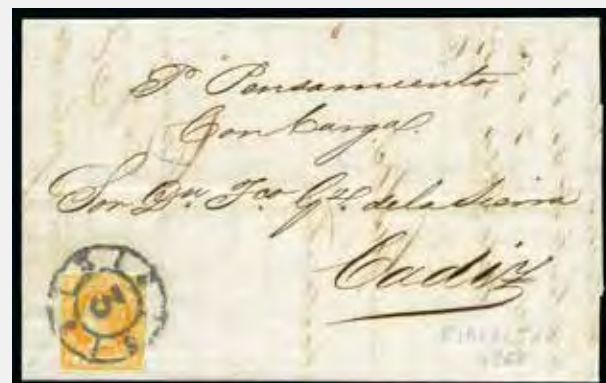 Pr Pensamiento
Con Carga
Sor Dn Fco Gz. de la Sierra
Cadiz
GIBRALTAR
5